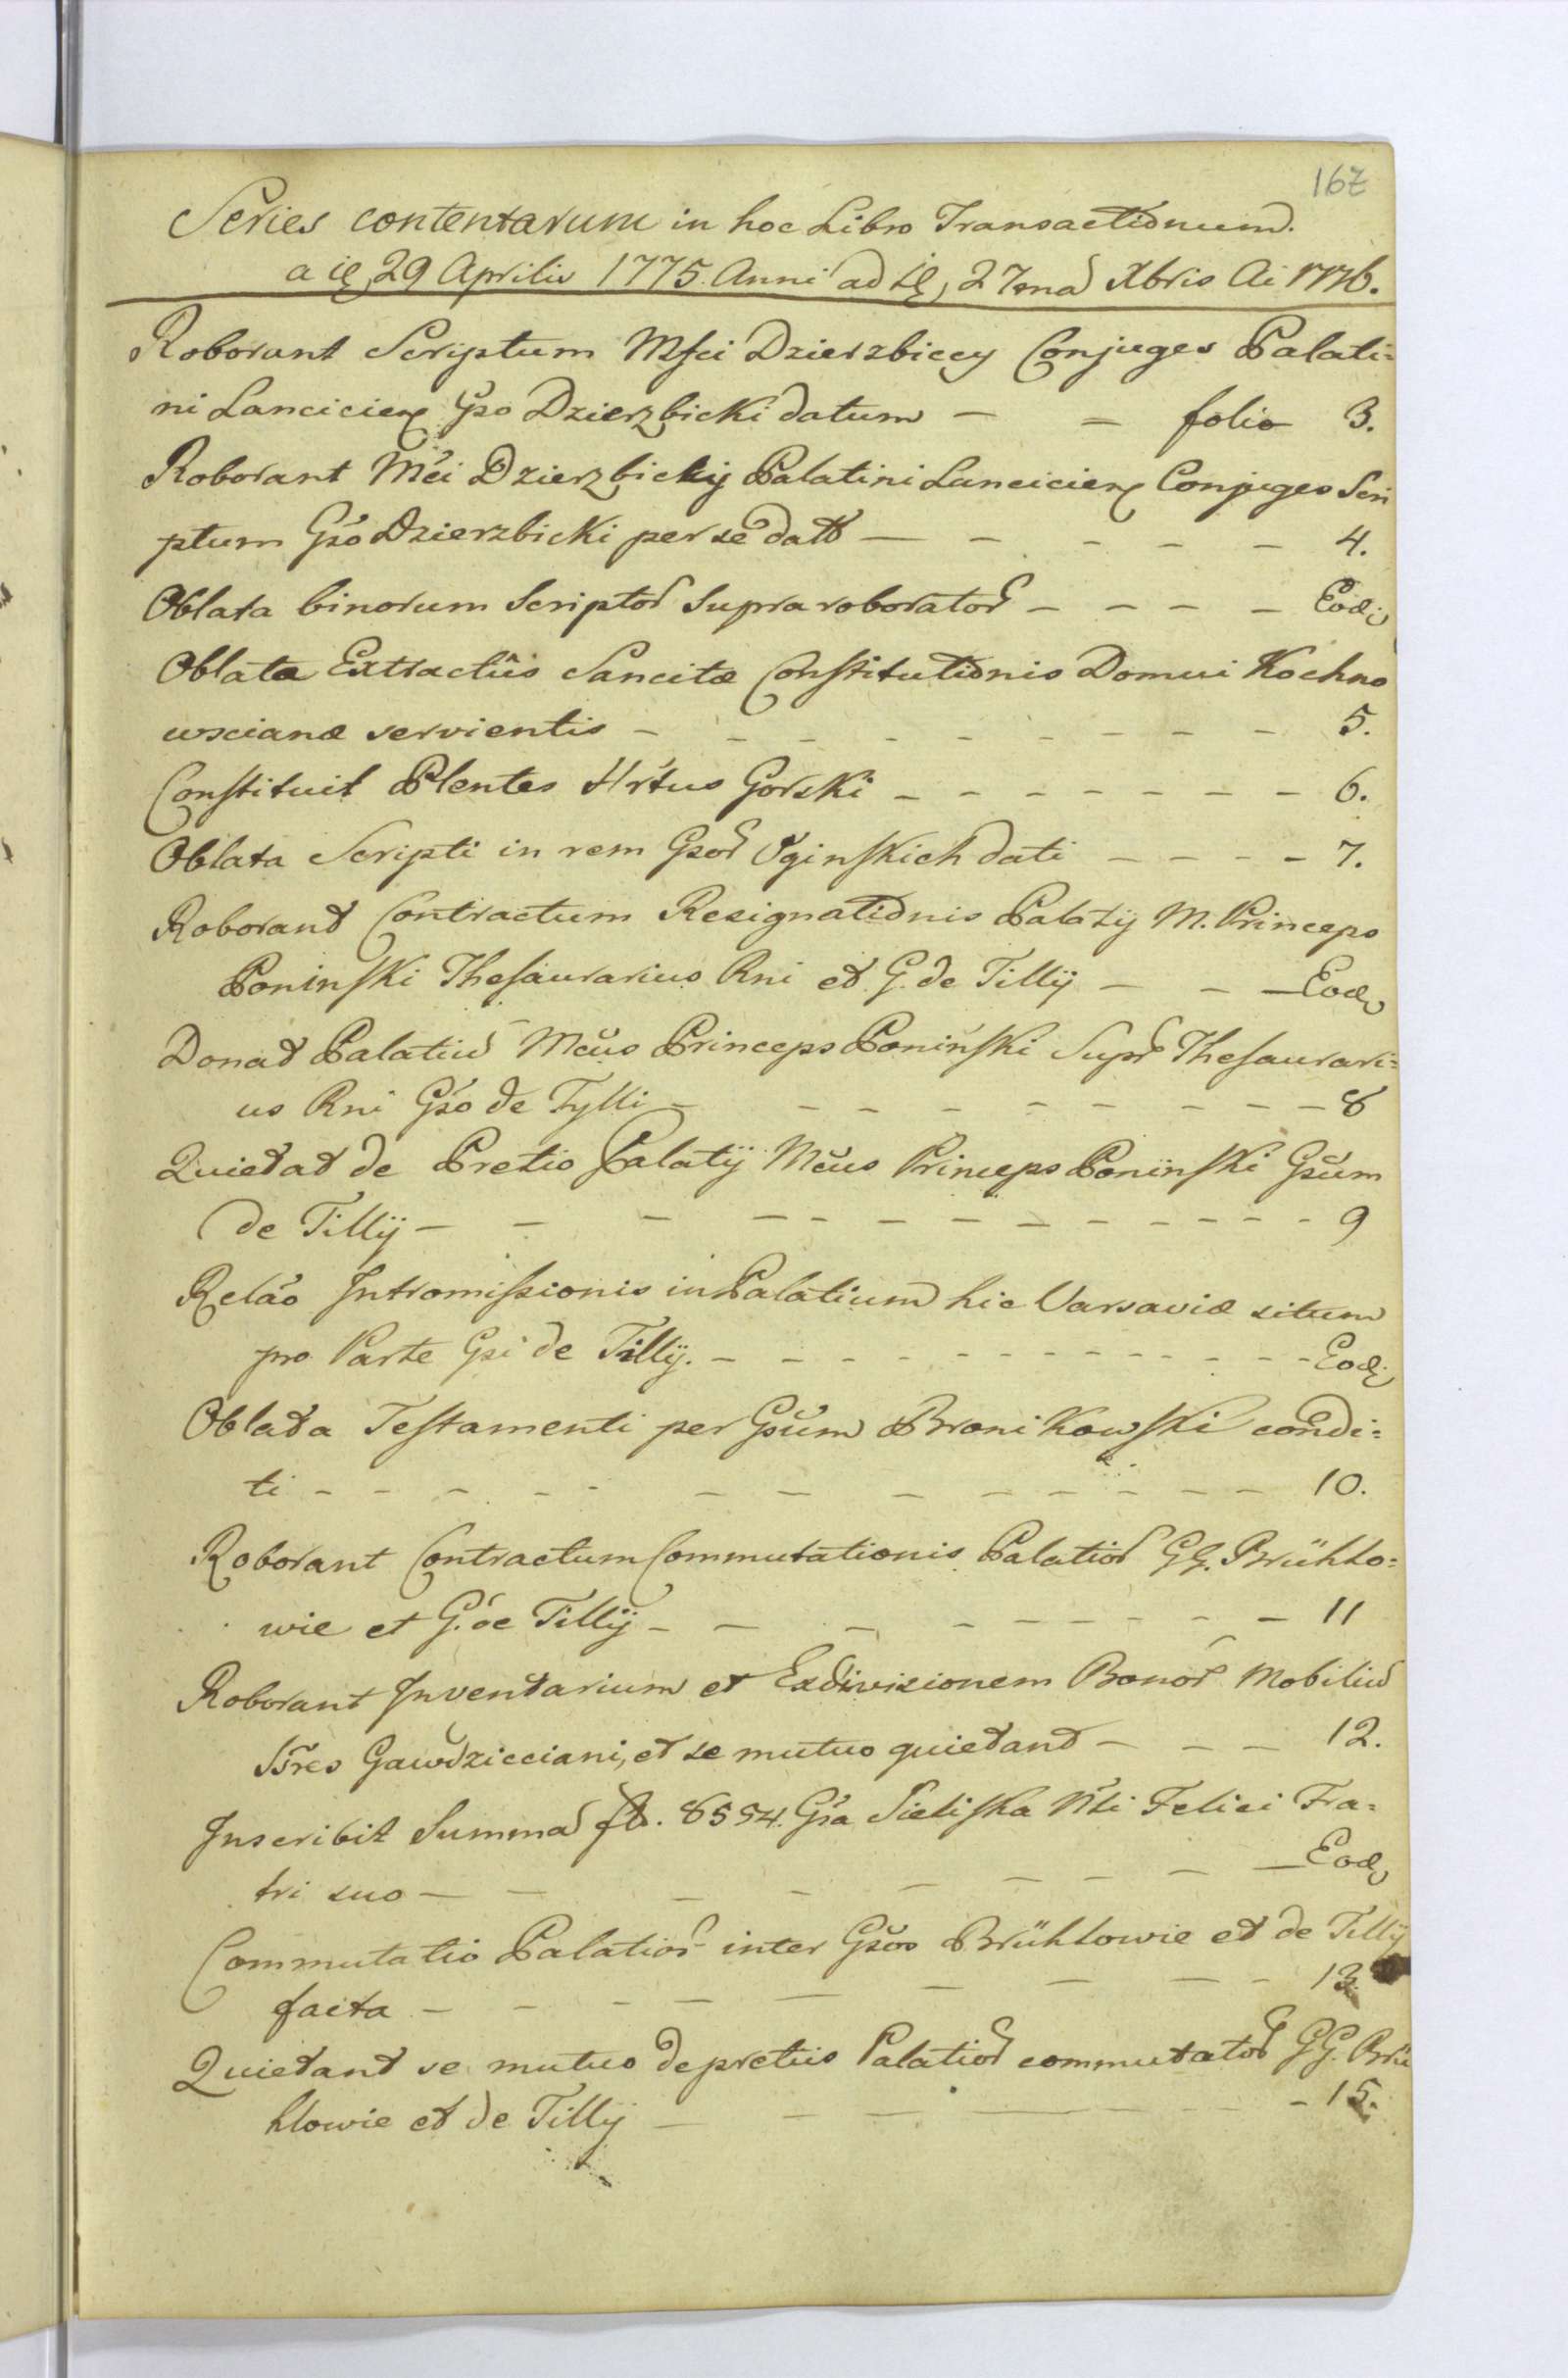 167
Series contentarum in hoc Libro Transactionum.
a 29 Aprilis 1775. Anni ad 27ma Xbris Ai 1776.
Roborant Scriptum Mfci Dzierzbiccy Conjuges Palati=
ni Lancicien Gso Dzierzbicki datum — — folio 3.
Roborant Mci Dzierzbickij Palatini Lancicien Conjuges Scri
ptum Gso Dzierzbicki per se datt — — — — — 4.
Oblata binorum Scriptor Supra roborator — — — — Eod
Oblata Extractus Sancitæ Constitutionis Domui Kochno
wscianæ servientis — — — — — — — — — 5.
Constituit Plentes Urtus Gorski — — — — — — — 6.
Oblata Scripti in rem Gsor Oginskich dati — — — — 7.
Roborant Contractum Resignationis Palatij M. Princeps
Poninski Thesaurarius Rni et G. de Tillij — — — Eod
Donat Palatiu Mcus Princeps Poninski Supr Thesaurari=
us Rni Gso de Tylli — — — — — — — — 8
Quietat de Pretio Palatij Mcus Princeps Poninski Gsum
de Tillij — — — — — — — — — — — — 9
Relao Intromissionis in Palatium hic Varsaviæ situm
pro Parte Gsi de Tillij. — — — — — — — — — — — Eod
Oblata Testamenti per Gsum Bronikowski condi=
ti — — — — — — — — — — — — — 10.
Roborant Contractum Commutationis Palatior GG. Brühlo=
wie et G. de Tillij — — — — — — — — — 11
Roborant Inventarium et Exdivisionem Bonor Mobiliu
SSres Gawdzicciani, et se mutuo quietant — — — 12.
Inscribit Summa fl. 8554. Gsa Sieliska Nli Felici Fra=
tri suo — — — — — — — — Eod
Commutatio Palatior inter Gsos Brühlowie et de Tillij
facta — — — — — — — — — 13.
Quietant se mutuo de pretiis Palatior commutator GG. Brü
hlowie et de Tillij — — — — — — 15.